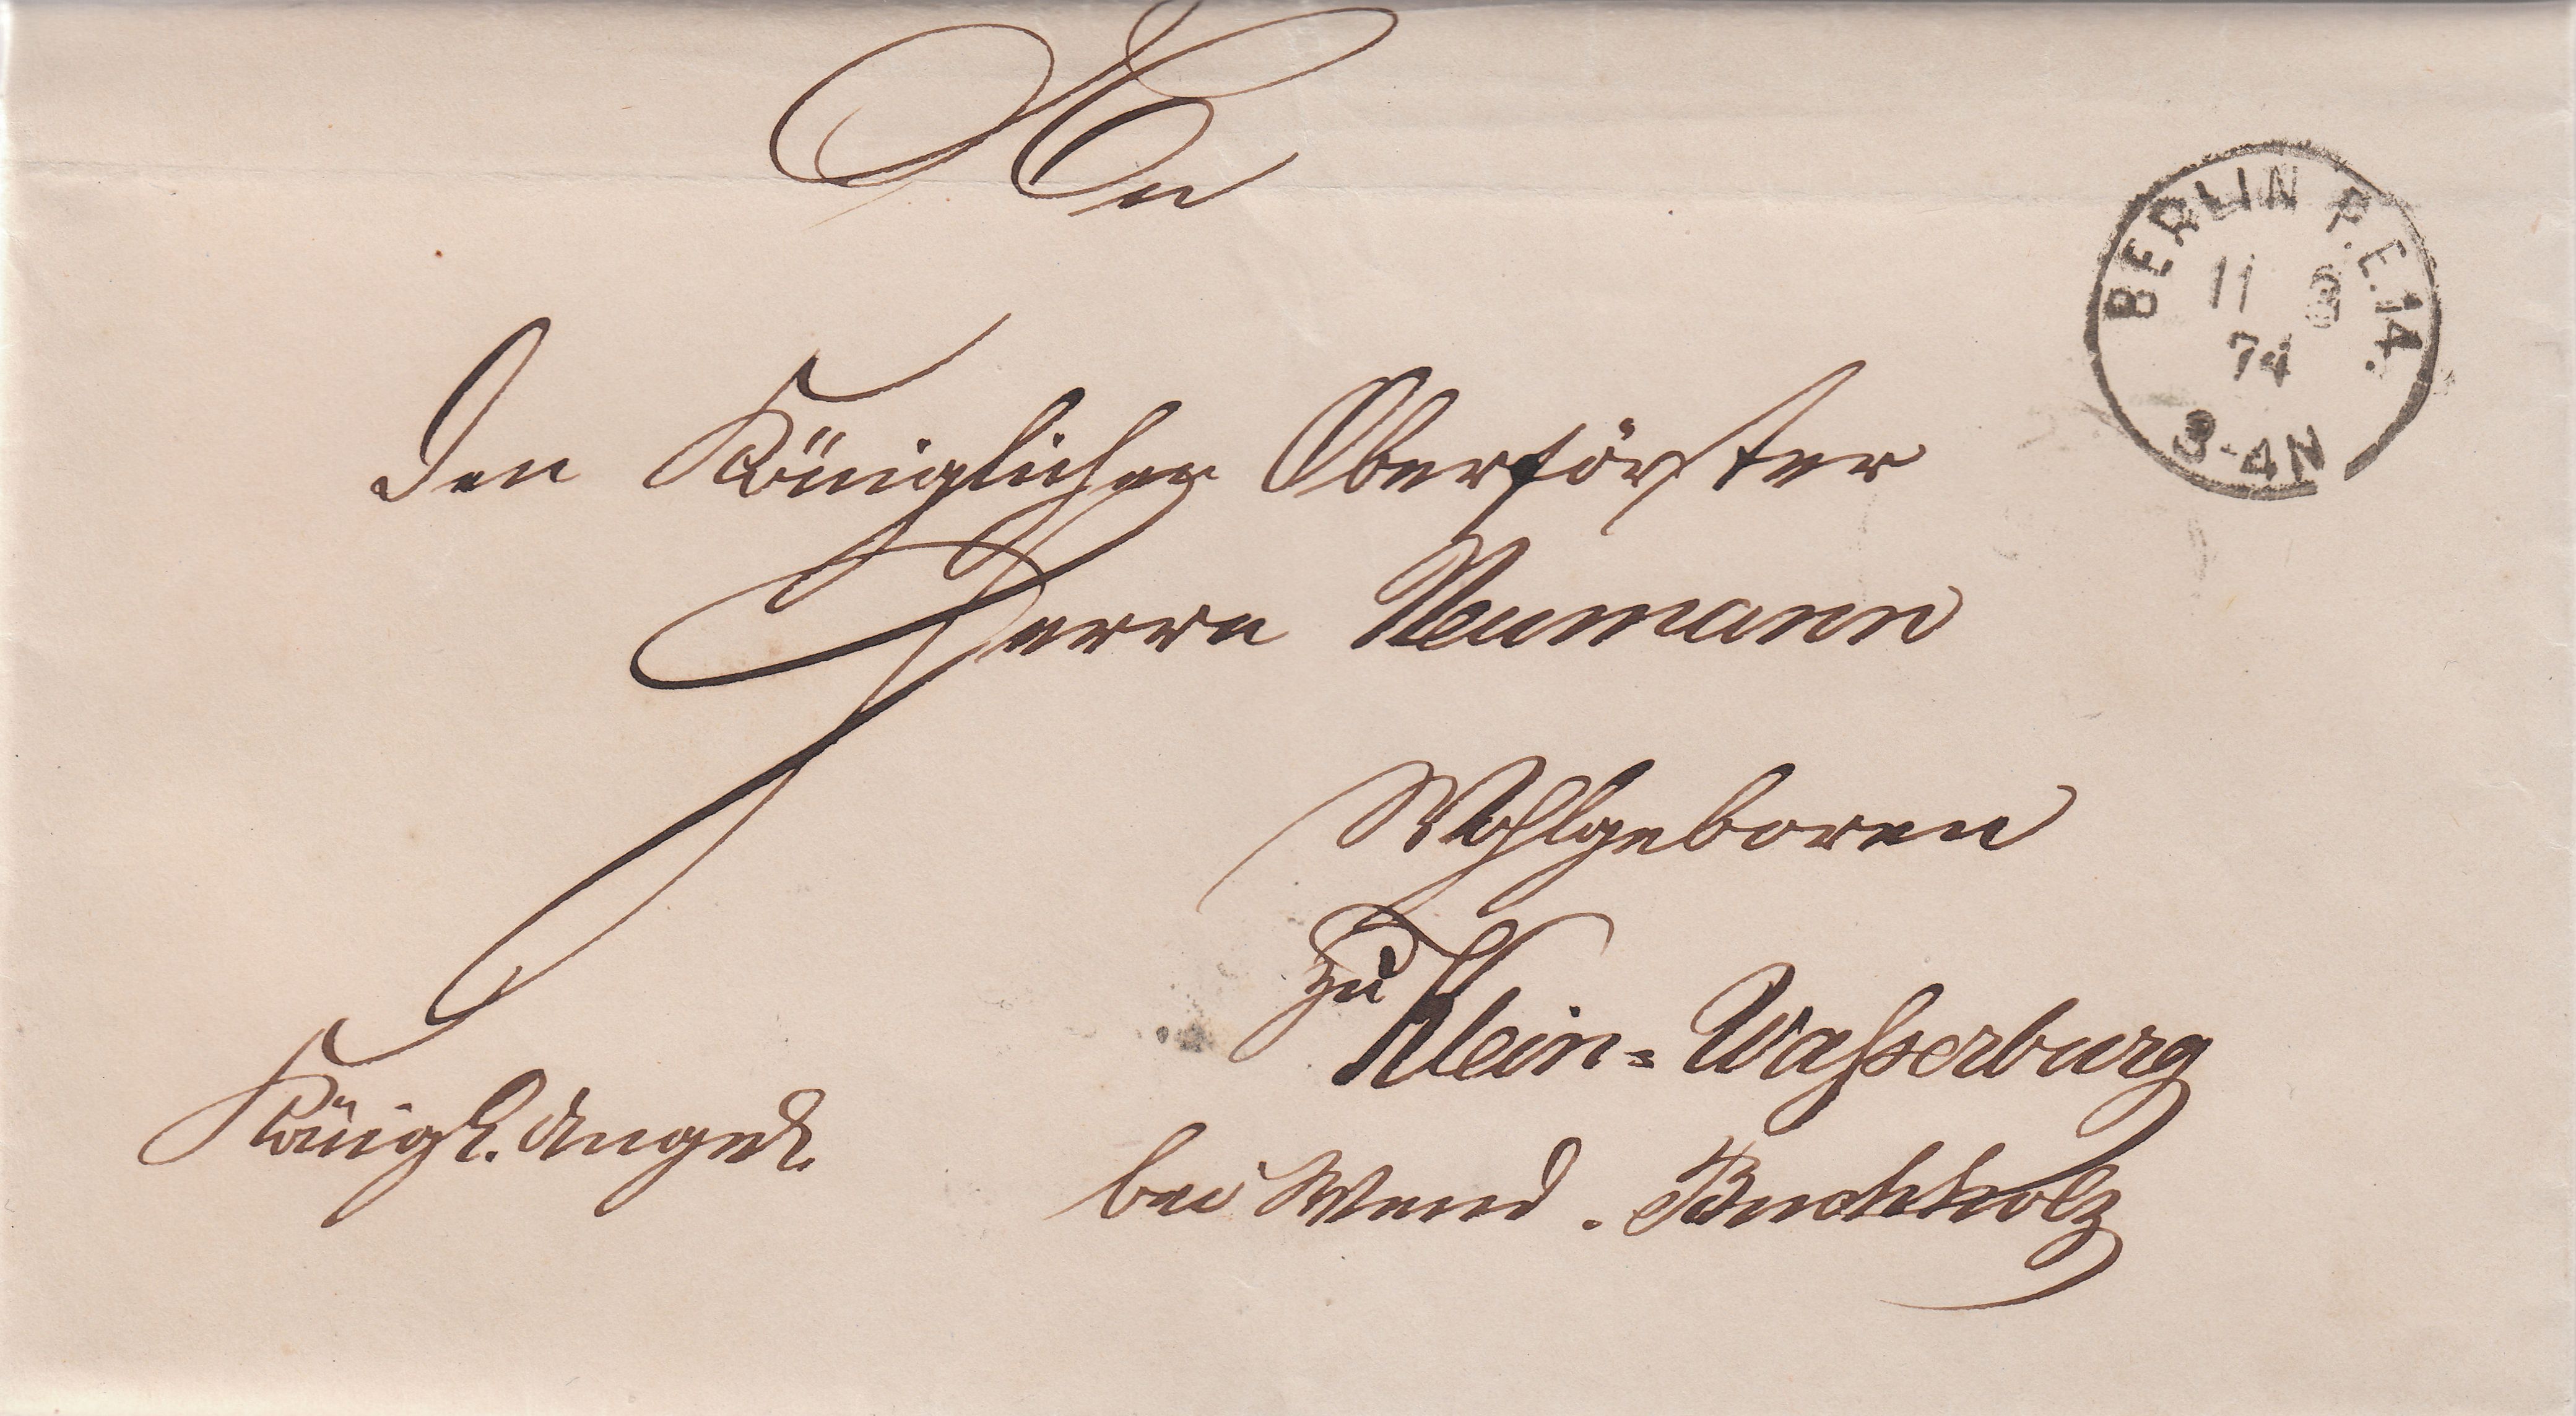 An
BERLIN P.E.14.
11
74
3-4N
Den Königlichen Oberförster
Herrn Neumann
Wohlgeboren
zu
Klein=Wasserburg
Königl. Angel.
bei Wend. Buchholz